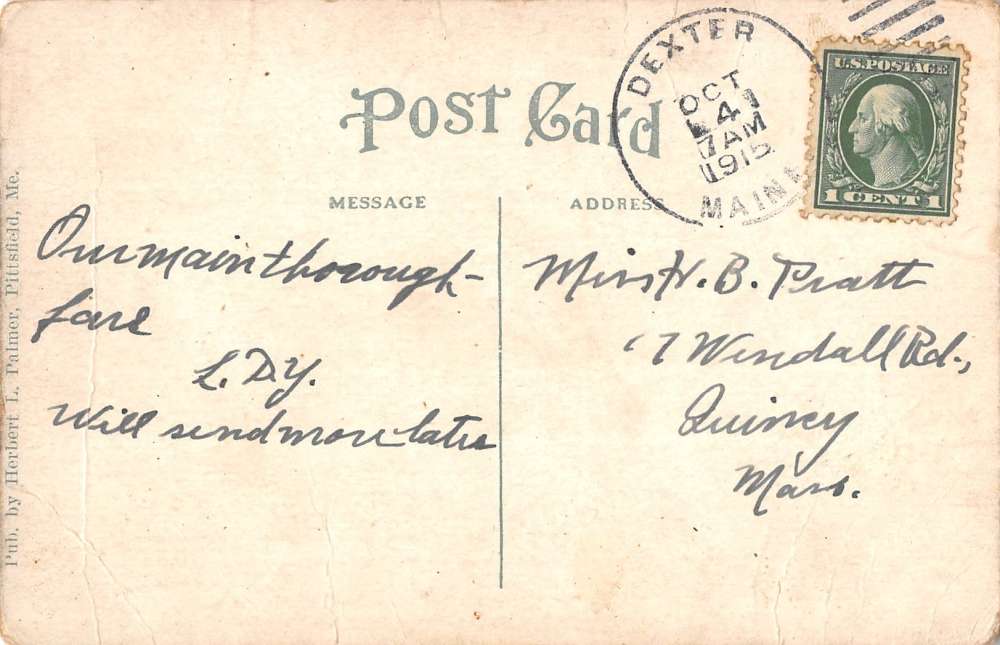 Post Card
DEXTER
OCT
4
7 AM
1915
MAINE
U.S. POSTAGE
1 CENT 1
MESSAGE
ADDRESS
Our main thorough-
fare
L. D. Y.
Will send more later
Miss H. B. Pratt
7 Wendall Rd.,
Quincy
Mass.
Pub. by Herbert L. Palmer, Pittsfield, Me.